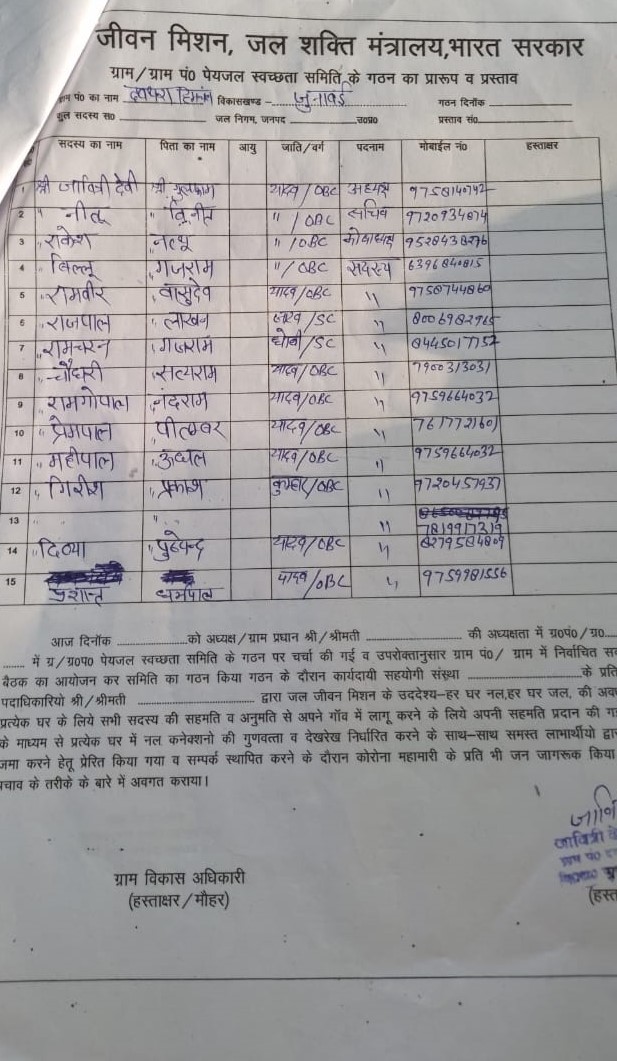 जीवन मिशन, जल शक्ति मंत्रालय,भारत सरकार
ग्राम/ग्राम पं० पेयजल स्वच्छता समिति के गठन का प्रारूप व प्रस्ताव
ग्राम पं० का नाम विकासखण्ड - जुनावई गठन दिनॉक
कुल सदस्य स० जल निगम, जनपद उ०प्र० प्रस्ताव सं०
सदस्य का नाम पिता का नाम आयु जाति/वर्ग पदनाम मोबाईल नं० हस्ताक्षर
1 श्री जावित्री देवी श्री यादव/OBC अध्यक्ष 9758140742
2 " नीतू " विनीत "/OBC सचिव 9720934874
3 " राकेश " नत्थू "/OBC कोषाध्यक्ष 9528438276
4 " बिल्लू " गजराम "/OBC सदस्य 6396840815
5 " रामवीर " वासुदेव यादव/OBC " 9758744860
6 " राजपाल " लाखन /SC " 8006982965
7 " रामचरन " गजराम धोबी/SC " 8445017752
8 " चौधरी " सत्यराम यादव/OBC " 7900313031
9 " रामगोपाल " नंदराम यादव/OBC " 9759664032
10 " प्रेमपाल " पीतम्बर यादव/OBC " 7617721601
11 " महीपाल " ऊधल यादव/OBC " 9759664032
12 " गिरीश " प्रकाश कुम्हार/OBC " 9720457937
13 " " " 7819917319
14 " दिव्या " पुष्पेन्द्र यादव/OBC " 8279584809
15 प्रशान्त धर्मपाल यादव/OBC " 9759981556
आज दिनॉक को अध्यक्ष/ग्राम प्रधान श्री/श्रीमती की अध्यक्षता में ग्र०पं०/ग्र०
में ग्र/ग्र०प० पेयजल स्वच्छता समिति के गठन पर चर्चा की गई व उपरोक्तानुसार ग्राम पं०/ ग्राम में निर्वाचित
बैठक का आयोजन कर समिति का गठन किया गठन के दौरान कार्यदायी सहयोगी संस्था के प्रति
पदाधिकारियो श्री/श्रीमती द्वारा जल जीवन मिशन के उददेश्य-हर घर नल,हर घर जल, की
प्रत्येक घर के लिये सभी सदस्य की सहमति व अनुमति से अपने गॉव में लागू करने के लिये अपनी सहमति प्रदान की
के माध्यम से प्रत्येक घर में नल कनेक्शनो की गुणवत्ता व देखरेख निर्धारित करने के साथ-साथ समस्त लाभार्थीयो
जमा करने हेतू प्रेरित किया गया व सम्पर्क स्थापित करने के दौरान कोरोना महामारी के प्रति भी जन जागरूक किया
बचाव के तरीके के बारे में अवगत कराया।
जावित्री
ग्राम पं०
ग्राम विकास अधिकारी
(हस्ताक्षर/मौहर)